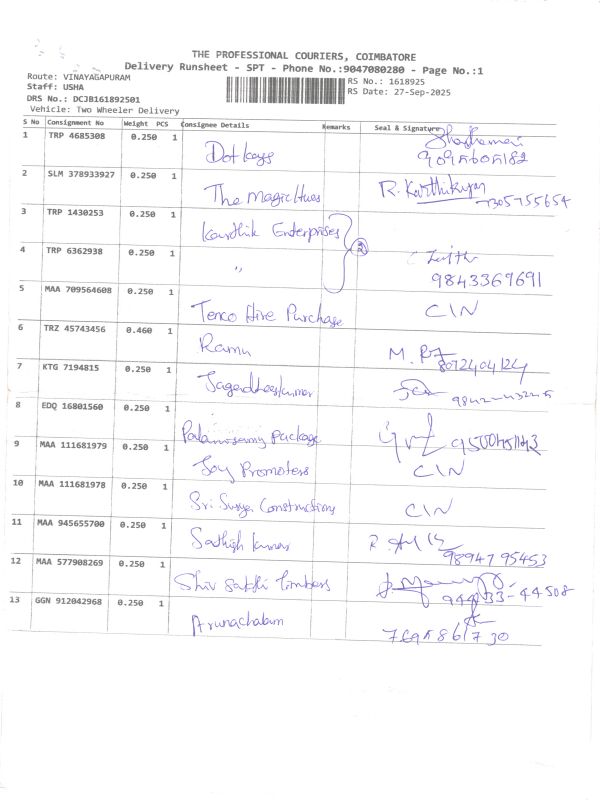 THE PROFESSIONAL COURIERS, COIMBATORE
Delivery Runsheet - SPT - Phone No.:9047080280 - Page No.:1
Route: VINAYAGAPURAM
RS No.: 1618925
Staff: USHA
RS Date: 27-Sep-2025
DRS No.: DCJB161892501
Vehicle: Two Wheeler Delivery
S No Consignment No Weight PCS Consignee Details Remarks Seal & Signature
1 TRP 4685308 0.250 1
Dot keys
2 SLM 378933927 0.250 1
The Magic Hues R. Karthikyan
7305755654
3 TRP 1430253 0.250 1
Karthik Enterprises
4 TRP 6362938 0.250 1 2
" 9843367691
5 MAA 709564608 0.250 1
Terco Hire Purchase C\N
6 TRZ 45743456 0.460 1
Ramu M. 8072404124
7 KTG 7194815 0.250 1
Jagadheeskumar
8 EDQ 16801560 0.250 1
Palanisamy Package
9 MAA 111681979 0.250 1
Joy Promoters C\N
10 MAA 111681978 0.250 1
Sri Surya Constructions C\N
11 MAA 945655700 0.250 1
Sathish kumar 9894795453
12 MAA 577908269 0.250 1
Shiv Sakthi Timbers
13 GGN 912042968 0.250 1
Arunachalam